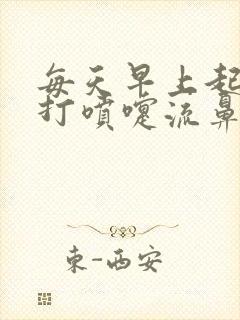 每天早上起
打噴嚏流鼻
東-西安